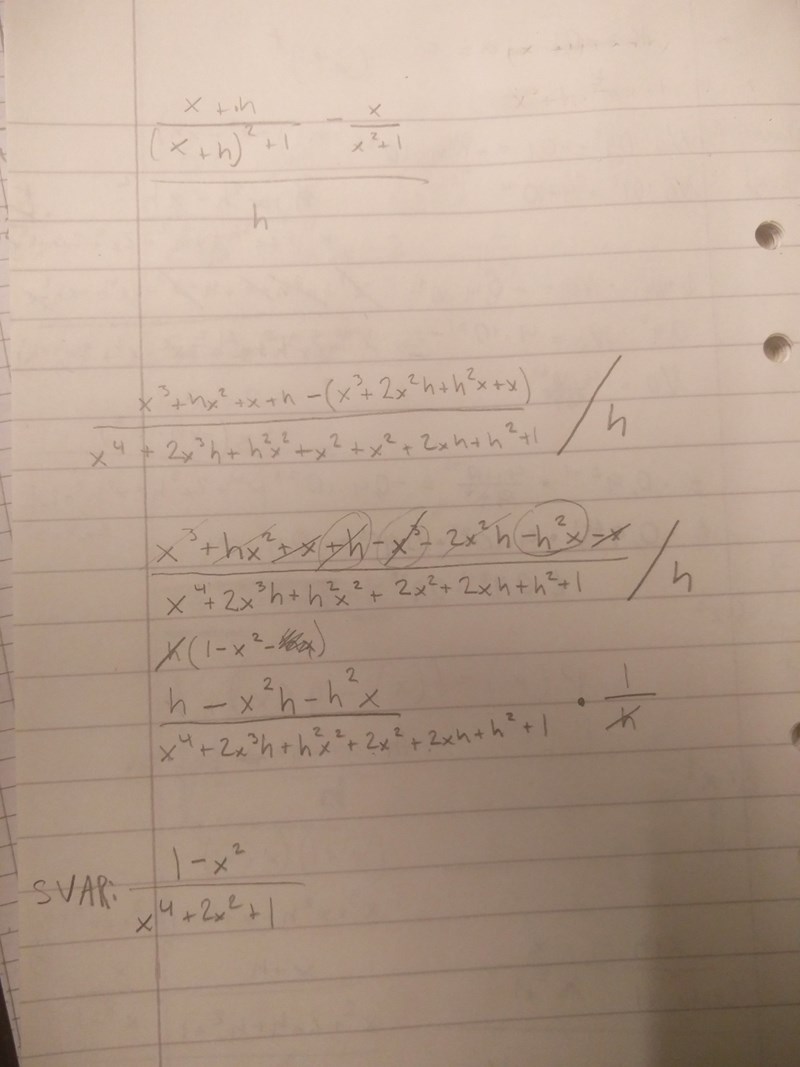 x + h
(x + h)² + 1
- x
x² + 1
h
x³ + hx² + x + h - (x³ + 2x²h + h²x + x)
x⁴ + 2x³h + h²x² + x² + x² + 2xh + h² + 1 / h
x³ + hx² + x + h - x³ - 2x²h - h²x - x
x⁴ + 2x³h + h²x² + 2x² + 2xh + h² + 1 / h
h(1 - x² - )
h - x²h - h²x
x⁴ + 2x³h + h²x² + 2x² + 2xh + h² + 1 · 1
h
SVAR: 1 - x²
x⁴ + 2x² + 1